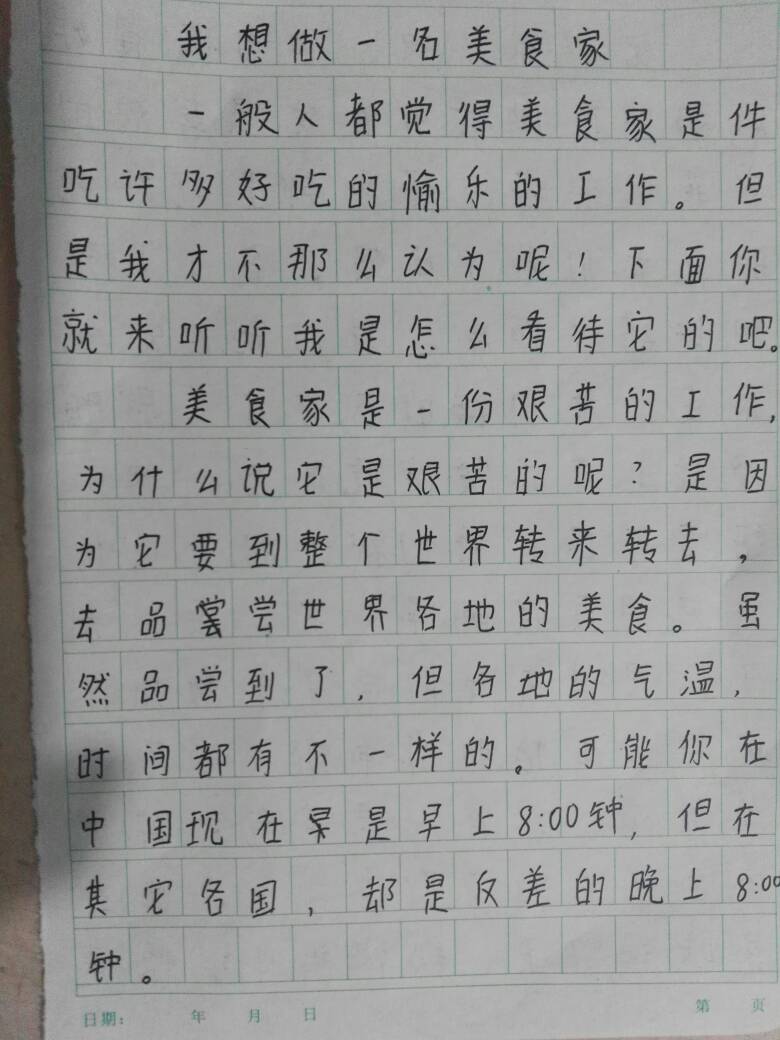 我想做一名美食家
一般人都觉得美食家是件
吃许多好吃的愉乐的工作。但
是我才不那么认为呢！下面你
就来听听我是怎么看待它的吧。
美食家是一份艰苦的工作,
为什么说它是艰苦的呢？是因
为它要到整个世界转来转去，
去品尝尝世界各地的美食。虽
然品尝到了，但各地的气温，
时间都有不一样的。可能你在
中国现在是早上8:00钟，但在
其它各国，却是反差的晚上8:00
钟。
日期： 年 月 日 第 页